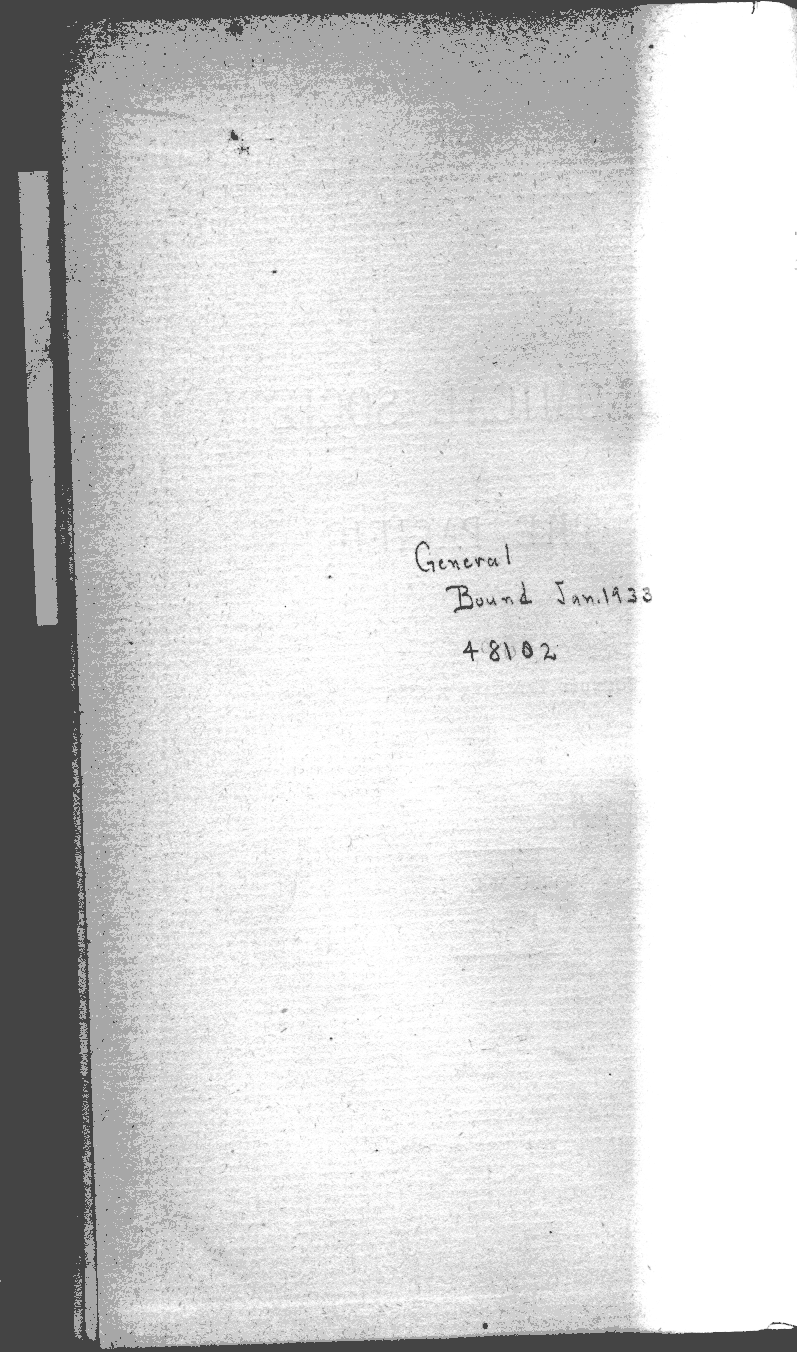 General
Bound Jan. 1933
48102